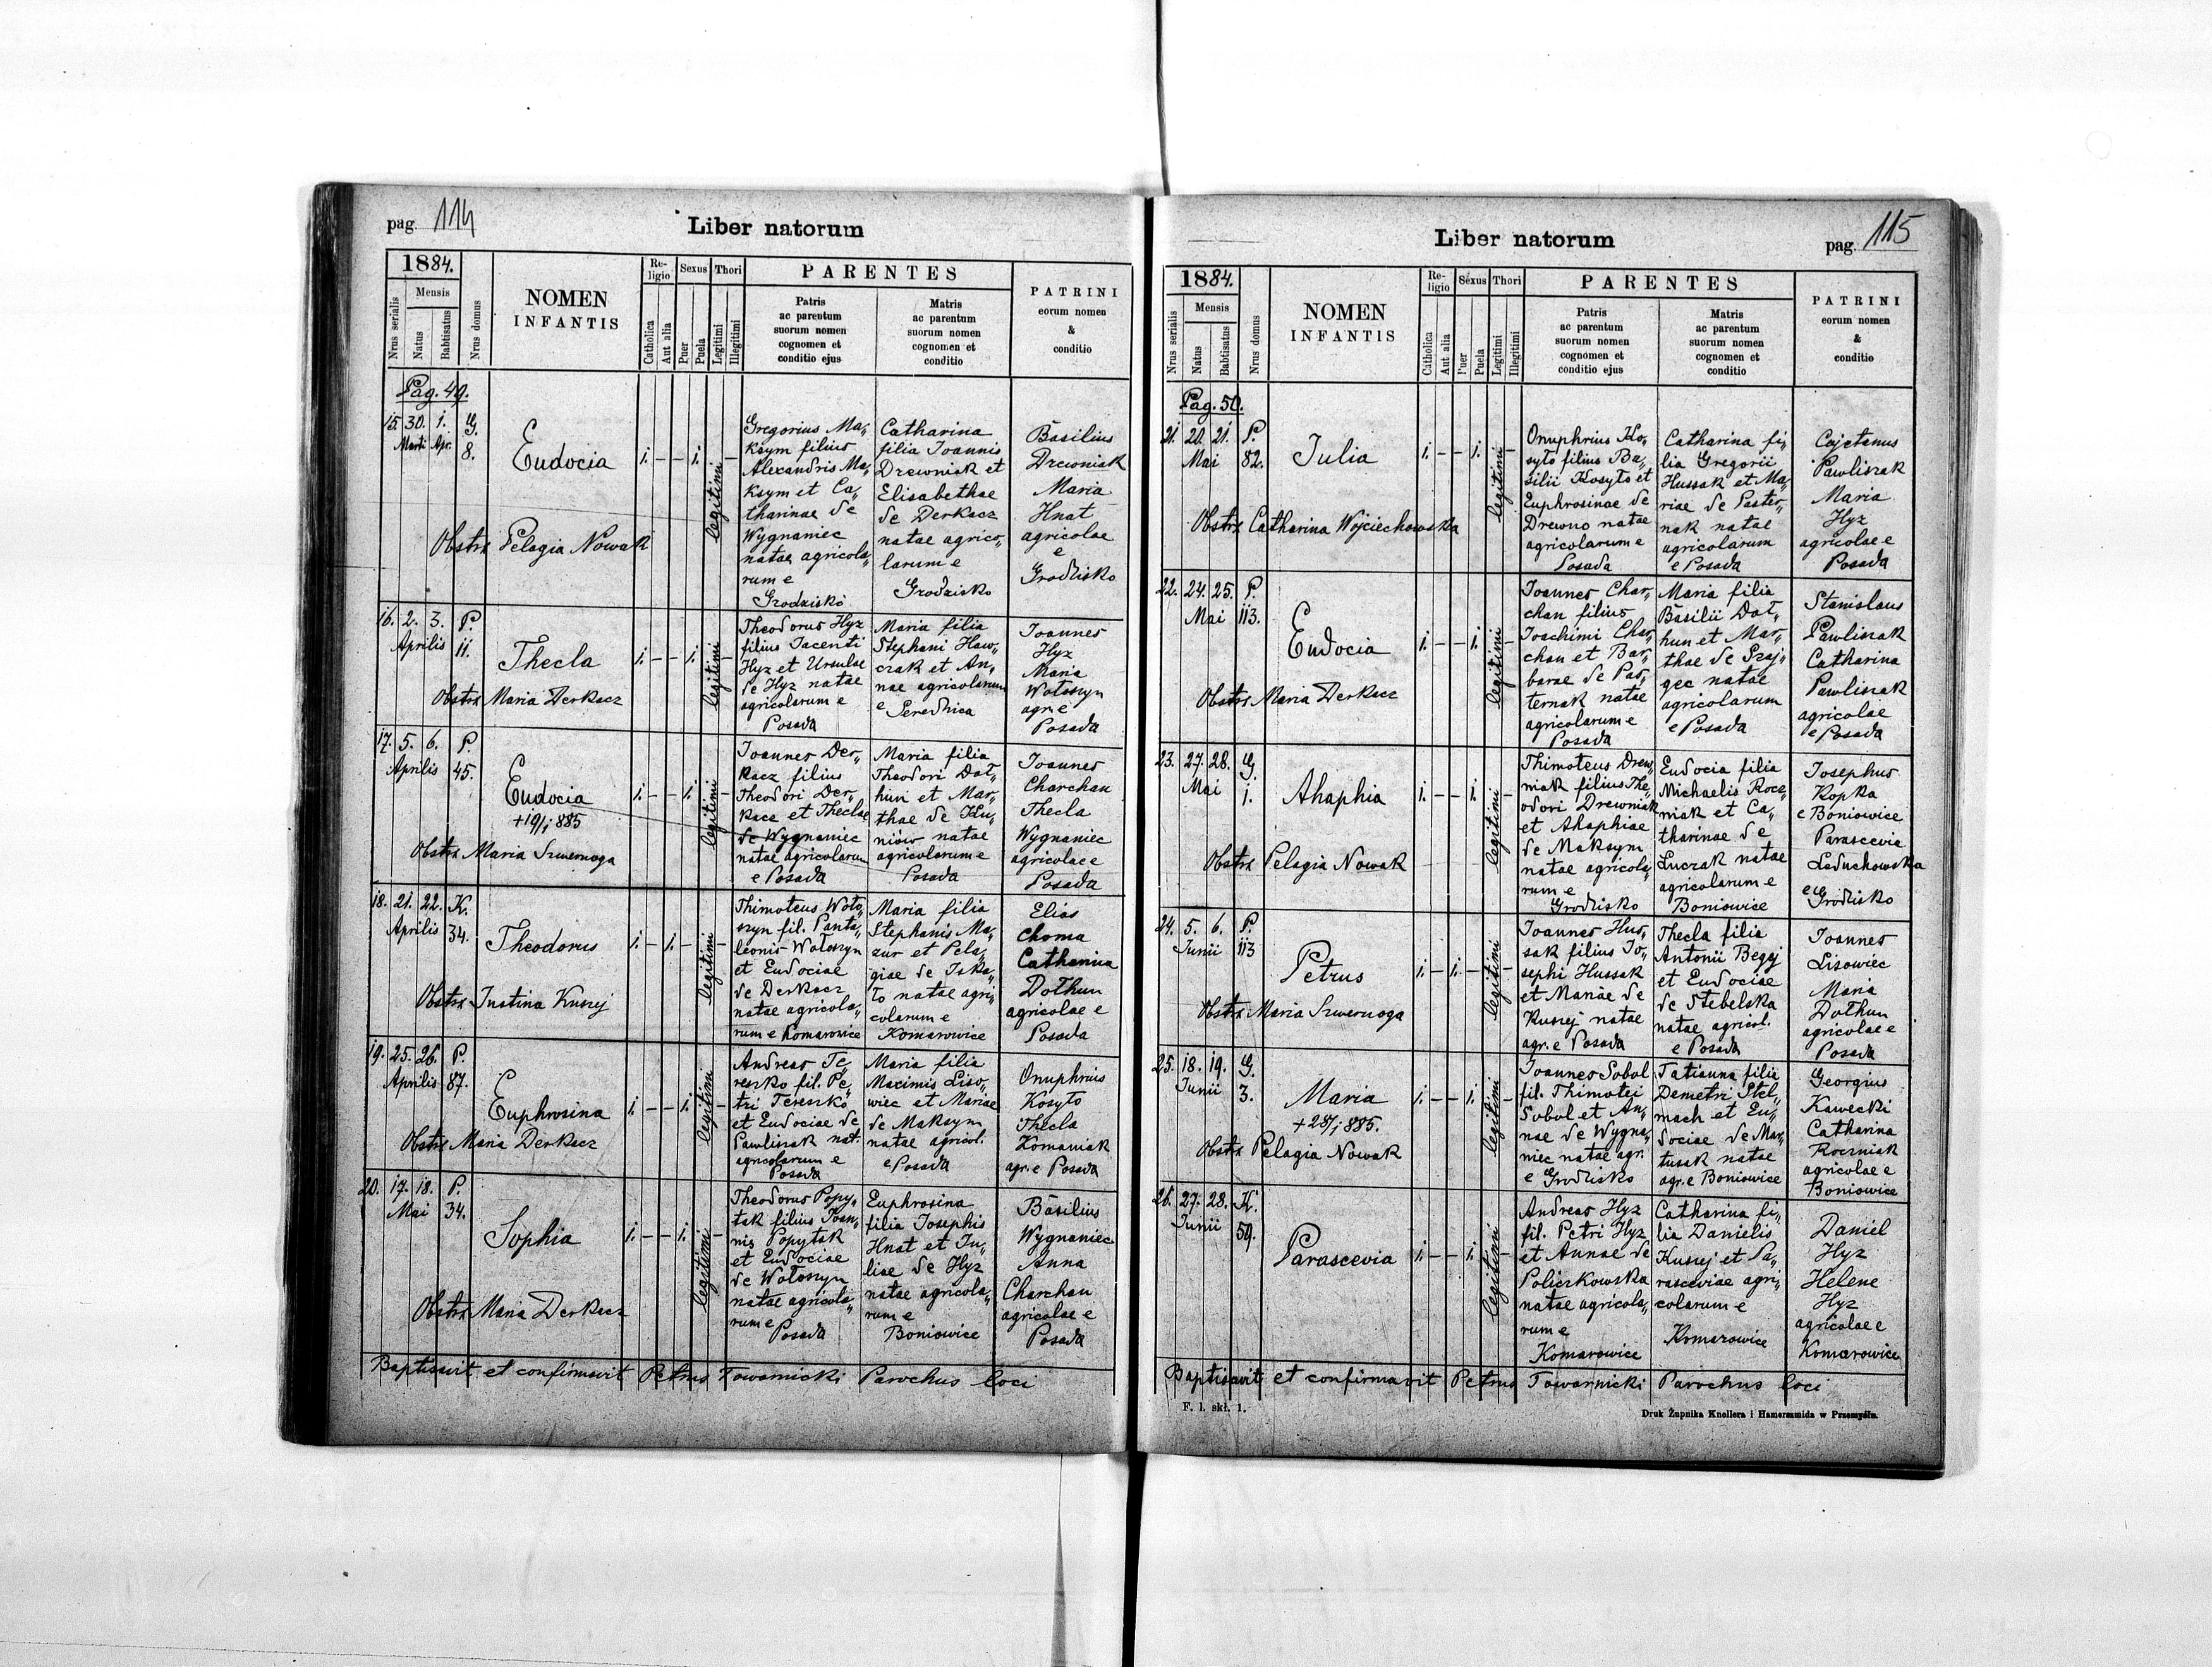 pag. 114
Liber natorum
1884.
Nrus serialis
Mensis
Natus
Babtisatus
Nrus domus
NOMEN
INFANTIS
Re-
ligio
Catholica
Aut alia
Sexus
Puer
Puela
Thori
Legitimi
Illegitimi
PARENTES
Patris
ac parentum
suorum nomen
cognomen et
conditio ejus
Matris
ac parentum
suorum nomen
cognomen et
conditio
PATRINI
eorum nomen
&
conditio
Pag. 49.
15. 30. 1. G.
Marti Apr. 8.
Eudocia
1. – – 1. legitimi –
Obstx Pelagia Nowak
Gregorius Ma„
ksym filius
Alexandris Ma„
ksym et Ca„
tharinae de
Wygnaniec
natae agricola„
rum e
Grodzisko
Catharina
filia Joannis
Drewniak et
Elisabethae
de Derkacz
natae agrico„
larum e
Grodzisko
Basilius
Drewniak
Maria
Hnat
agricolae
e
Grodzisko
16. 2. 3. P.
Aprilis 11.
Thecla
1. – – 1. legitimi –
Obstx Maria Derkacz
Theodorus Hyz
filius Jacenti
Hyz et Ursulae
de Hyz natae
agricolarum e
Posada
Maria filia
Stephani Haw„
czak et An„
nae agricolarum
e Perednica
Joannes
Hyz
Maria
Wołoszyn
agr. e
Posada
17. 5. 6. P.
Aprilis 45.
Eudocia
+19/1 885
1. – – 1. legitimi –
Obstx Maria Szwernoga
Joannes Der„
kacz filius
Theodori Der„
kacz et Theclae
de Wygnaniec
natae agricolarum
e Posada
Maria filia
Theodori Dot„
hun et Mar„
thae de Hu„
niów natae
agricolarum e
Posada
Joannes
Charchan
Thecla
Wygnaniec
agricolae e
Posada
18. 21. 22. K.
Aprilis 34.
Theodorus
1. – 1. – legitimi –
Obstx Justina Kuszej
Thimoteus Woło„
szyn fil. Panta„
leonis Wołoszyn
et Eudociae
de Derkacz
natae agricola„
rum e Komarowice
Maria filia
Stephanis Ma„
zur et Pela„
giae de Iska„
To natae agri„
colarum e
Komarowice
Elias
Choma
Catharina
Dothun
agricolae e
Posada
19. 25. 26. P.
Aprilis 87.
Euphrosina
1. – – 1. legitimi –
Obstx Maria Derkacz
Andreas Te„
reszko fil. Pe„
tri Tereszko
et Eudociae de
Pawliszak nat.
agricolarum e
Posada
Maria filia
Maximis Liso„
wiec et Mariae
de Maksym
natae agricol.
e Posada
Onuphrius
Kosyto
Thecla
Komaniak
agr. e Posada
20. 17. 18. P.
Mai 34.
Sophia
1. – – 1. legitimi –
Obstx Maria Derkacz
Theodorus Popy„
tak filius Joan„
nis Popytak
et Eudociae
de Wołoszyn
natae agricola„
rum e
Posada
Euphrosina
filia Josephis
Hnat et Ju„
liae de Hyz
natae agricola„
rum e
Boniowice
Basilius
Wygnaniec
Anna
Charchan
agricolae e
Posada
Baptisavit et confirmavit Petrus Towarnicki Parochus loci
Liber natorum
pag. 115
1884.
Nrus serialis
Mensis
Natus
Babtisatus
Nrus domus
NOMEN
INFANTIS
Re-
ligio
Catholica
Aut alia
Sexus
Puer
Puela
Thori
Legitimi
Illegitimi
PARENTES
Patris
ac parentum
suorum nomen
cognomen et
conditio ejus
Matris
ac parentum
suorum nomen
cognomen et
conditio
PATRINI
eorum nomen
&
conditio
Pag. 50.
21. 20. 21. P.
Mai 82.
Julia
1. – – 1. legitimi –
Obstx Catharina Wojciechowska
Onuphrius Ko„
syto filius Ba„
silii Kosyto et
Euphrosinae de
Drewno natae
agricolarum e
Posada
Catharina fi„
lia Gregorii
Hussak et Ma„
riae de Paster„
nak natae
agricolarum
e Posada
Cajetanus
Pawliszak
Maria
Hyz
agricolae e
Posada
22. 24. 25. P.
Mai 113.
Eudocia
1. – – 1. legitimi –
Obstx Maria Derkacz
Joannes Char„
chan filius
Joachimi Char„
chan et Bar„
barae de Pas„
ternak natae
agricolarum e
Posada
Maria filia
Basilii Dot„
hun et Mar„
thae de Szaj„
gec natae
agricolarum
e Posada
Stanislaus
Pawliszak
Catharina
Pawliszak
agricolae
e Posada
23. 27. 28. G.
Mai 1.
Ahaphia
1. – – 1. legitimi –
Obstx Pelagia Nowak
Thimoteus Drew„
niak filius The„
odori Drewniak
et Ahaphiae
de Maksym
natae agricola„
rum e
Grodzisko
Eudocia filia
Michaelis Rocz„
niak et Ca„
tharinae de
Łuczak natae
agricolarum e
Boniowice
Josephus
Kopka
e Boniowice
Parascevia
Leduchowska
e
Grodzisko
24. 5. 6. P.
Junii 113
Petrus
1. – 1. – legitimi –
Obstx Maria Szwernoga
Joannes Hus„
sak filius Jo„
sephi Hussak
et Mariae de
Kuszej natae
agr. e Posada
Thecla filia
Antonii Begej
et Eudociae
de Stebelska
natae agricol.
e Posada
Joannes
Lisowiec
Maria
Dothun
agricolae e
Posada
25. 18. 19. G.
Junii 3.
Maria
+28/1 885.
1. – – 1. legitimi –
Obstx Pelagia Nowak
Joannes Sobol
fil. Thimotei
Sobol et An„
nae de Wygna„
niec natae agr.
e Grodzisko
Tatianna filia
Demetri Stel„
mach et Eu„
dociae de Mar„
tusak natae
agr. e Boniowice
Georgius
Kawecki
Catharina
Roczniak
agricolae e
Boniowice
26. 27. 28. K.
Junii 59.
Parascevia
1. – – 1. legitimi –
Andreas Hyz
fil. Petri Hyz
et Annae de
Policzkowska
natae agricola„
rum e
Komarowice
Catharina fi„
lia Danielis
Kuszej et Pa„
rasceviae agri„
colarum e
Komarowice
Daniel
Hyz
Helene
Hyz
agricolae e
Komarowice
Baptisavit et confirmavit Petrus Towarnicki Parochus loci
F. l. skł. 1.
Druk Żupnika Knollera i Hamerszmida w Przemyślu.